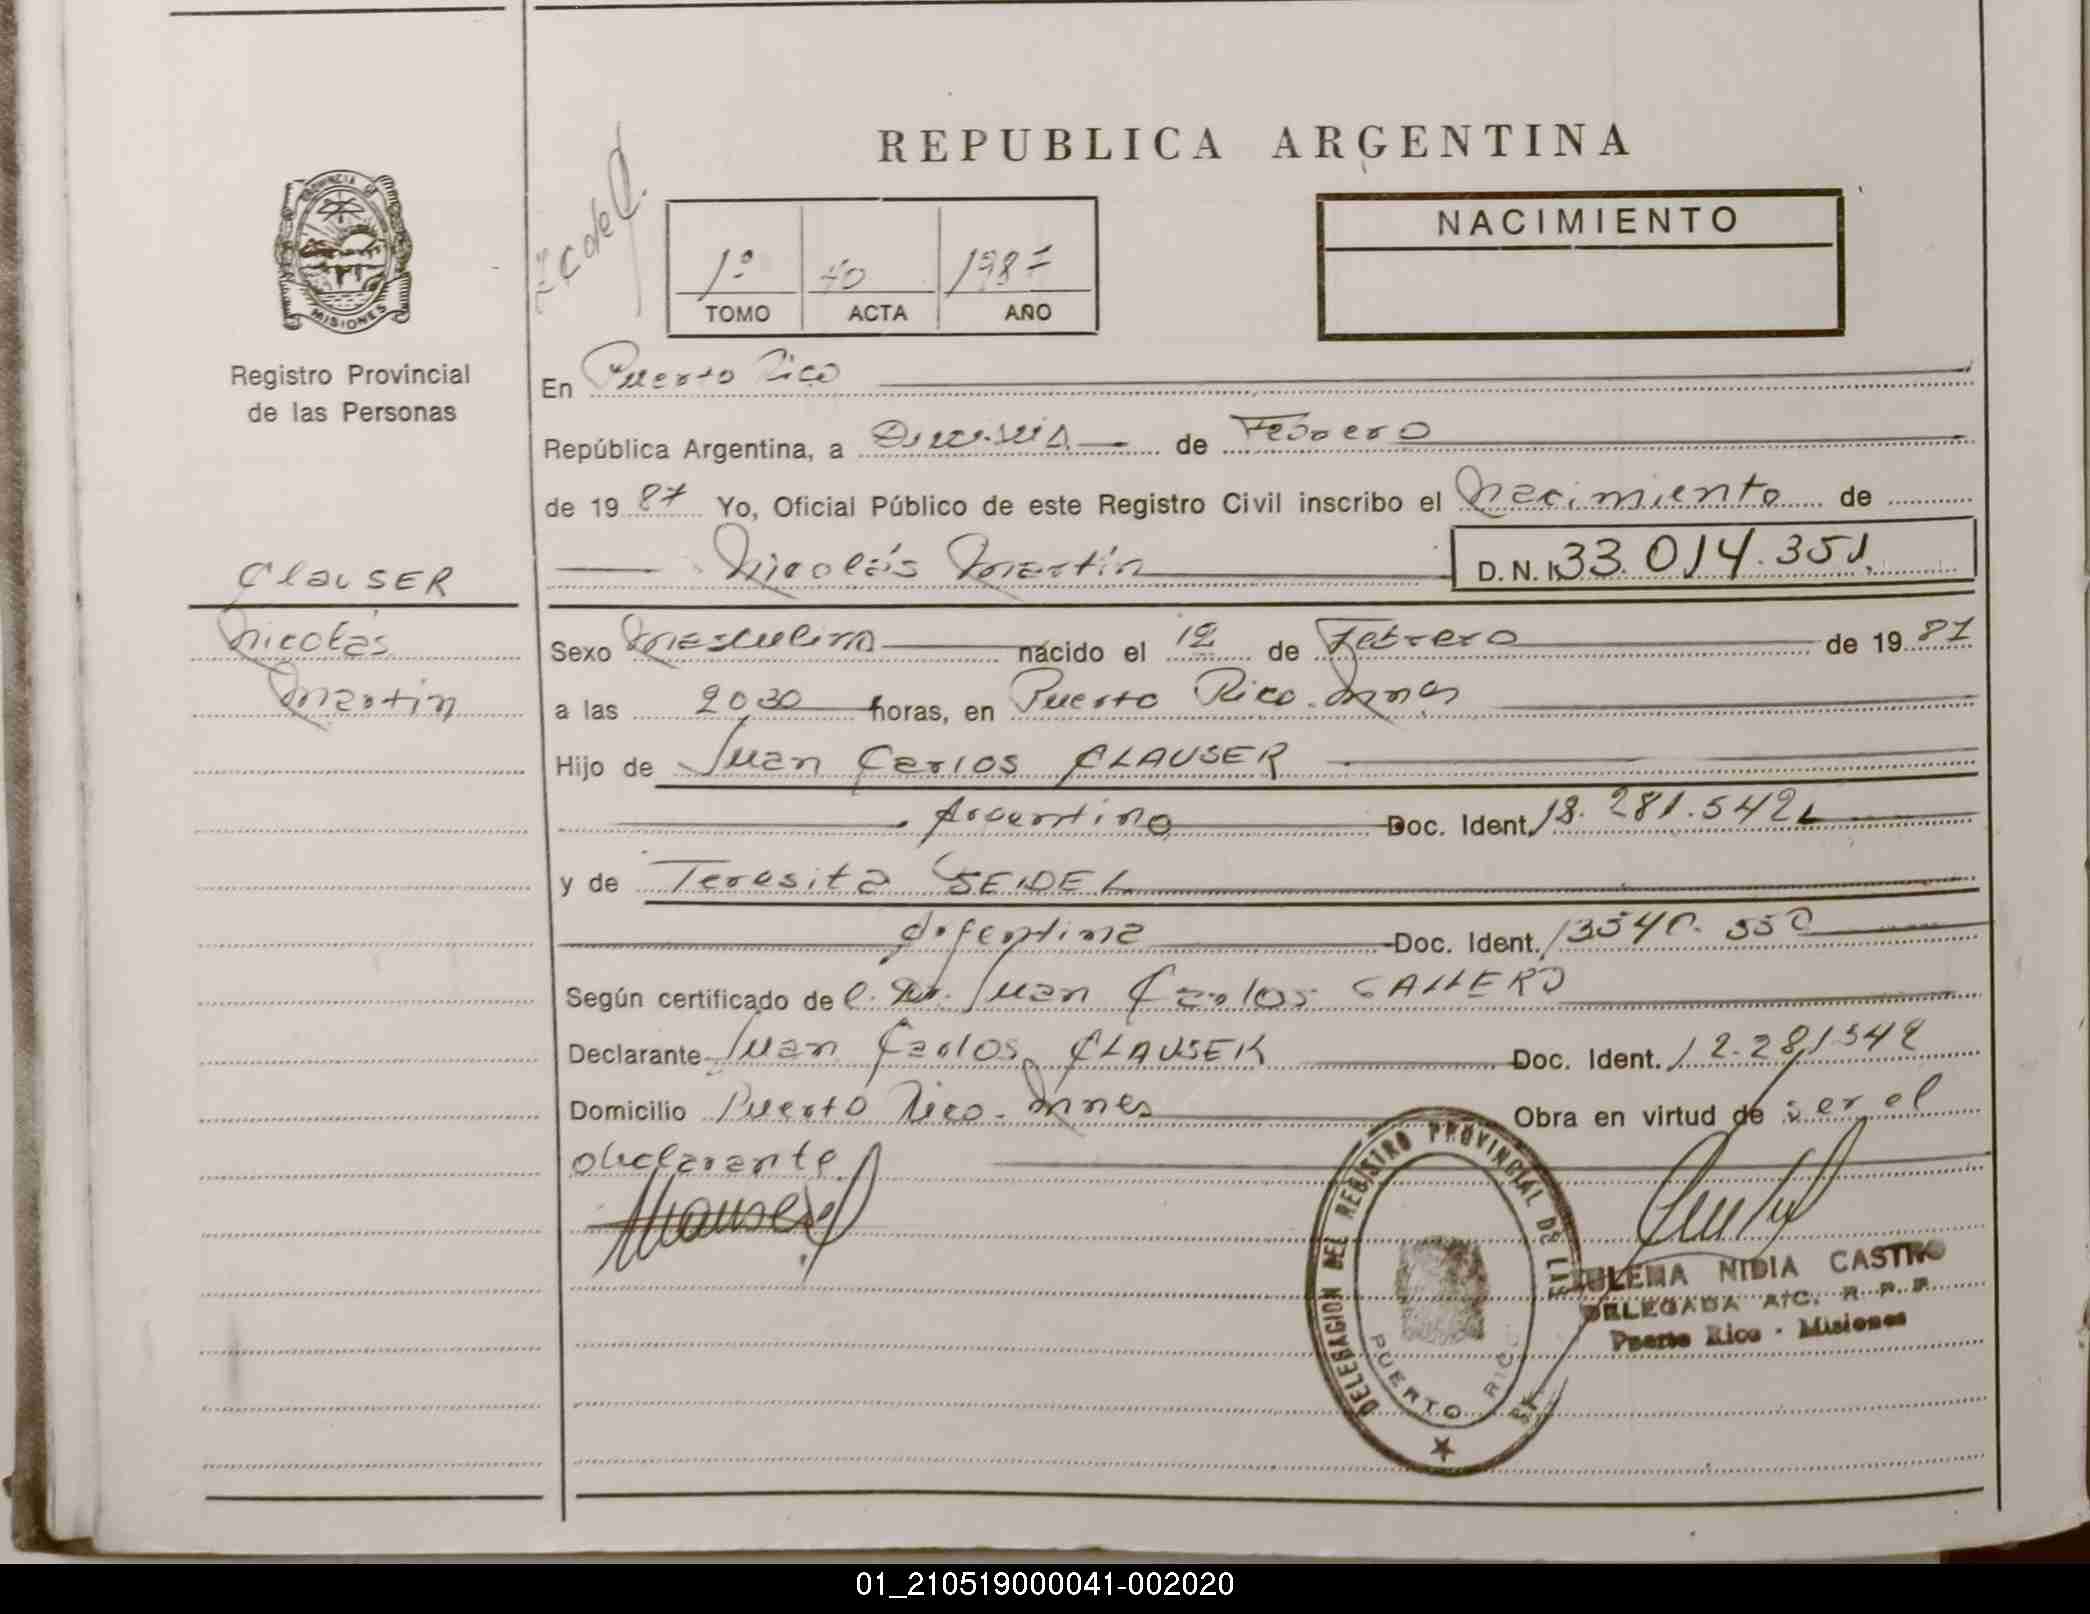 REPUBLICA ARGENTINA
PROVINCIA DE
MISIONES
Registro Provincial
de las Personas
1º 40 1987
TOMO ACTA AÑO
NACIMIENTO
En Puerto Rico
República Argentina, a Dieciseis de Febrero
de 19 87 Yo, Oficial Público de este Registro Civil inscribo el Nacimiento de
Nicolás Martín D.N.I. 33.014.351
CLAUSER
Nicolás
Martín
Sexo Masculino nacido el 12 de Febrero de 19 87
a las 2030 horas, en Puerto Rico. Mnes
Hijo de Juan Carlos CLAUSER
Argentino Doc. Ident.
y de Teresita SEIDEL
Argentina Doc. Ident.
Según certificado de Juan Carlos
Declarante Juan Carlos CLAUSER Doc. Ident. 12.281542
Domicilio Puerto Rico. Mnes Obra en virtud de ser el
declarante
DELEGACION DEL REGISTRO PROVINCIAL DE LAS
PUERTO RICO
NIDIA CASTRO
DELEGADA A/C. R. P. P.
Puerto Rico - Misiones
01_210519000041-002020